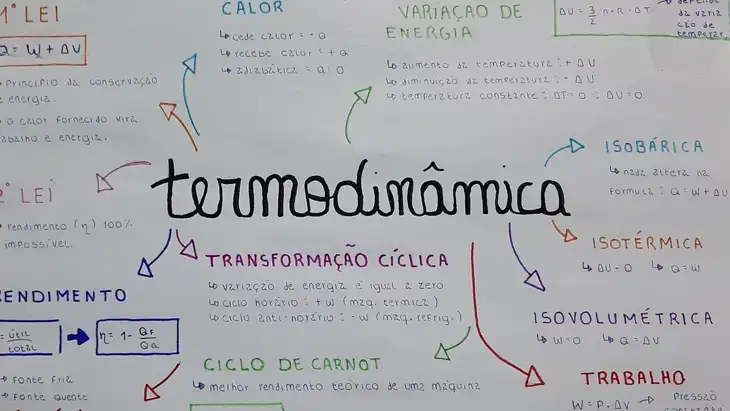 1ª LEI
Q = W + ΔU
Princípio da conservação
e energia.
o calor fornecido vira
trabalho e energia.
CALOR
↳ cede calor = - Q
↳ recebe calor = + Q
↳ adiabática = Q = 0
VARIAÇÃO DE
ENERGIA
↳ aumento da temperatura : + ΔU
↳ diminuição da temperatura : - ΔU
↳ temperatura constante : ΔT = 0 ∴ ΔU = 0
ΔU = 3/2 n . R . ΔT
da varia
ção de
temperat.
termodinâmica
2ª LEI
rendimento (η) 100%
impossível.
RENDIMENTO
= útil/total
η = 1 - QF/QQ
→ Fonte Fria
→ Fonte quente
TRANSFORMAÇÃO CÍCLICA
↳ variação de energia é igual a zero
↳ ciclo horário : + W (máq. térmica)
↳ ciclo anti-horário : - W (máq. refrig.)
CICLO DE CARNOT
↳ melhor rendimento teórico de uma máquina
ISOBÁRICA
↳ nada altera na
fórmula : Q = W + ΔU
ISOTÉRMICA
↳ ΔU = 0 ↳ Q = W
ISOVOLUMÉTRICA
↳ W = 0 ↳ Q = ΔU
TRABALHO
W = P . ΔV → Pressão
constante